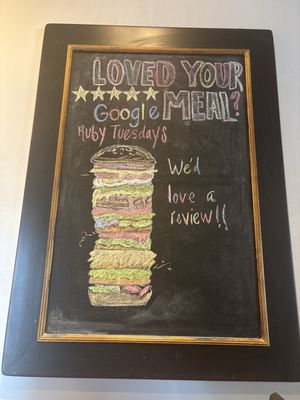 LOVED YOUR
MEAL?
Google
Ruby Tuesdays
We'd
love a
review!!